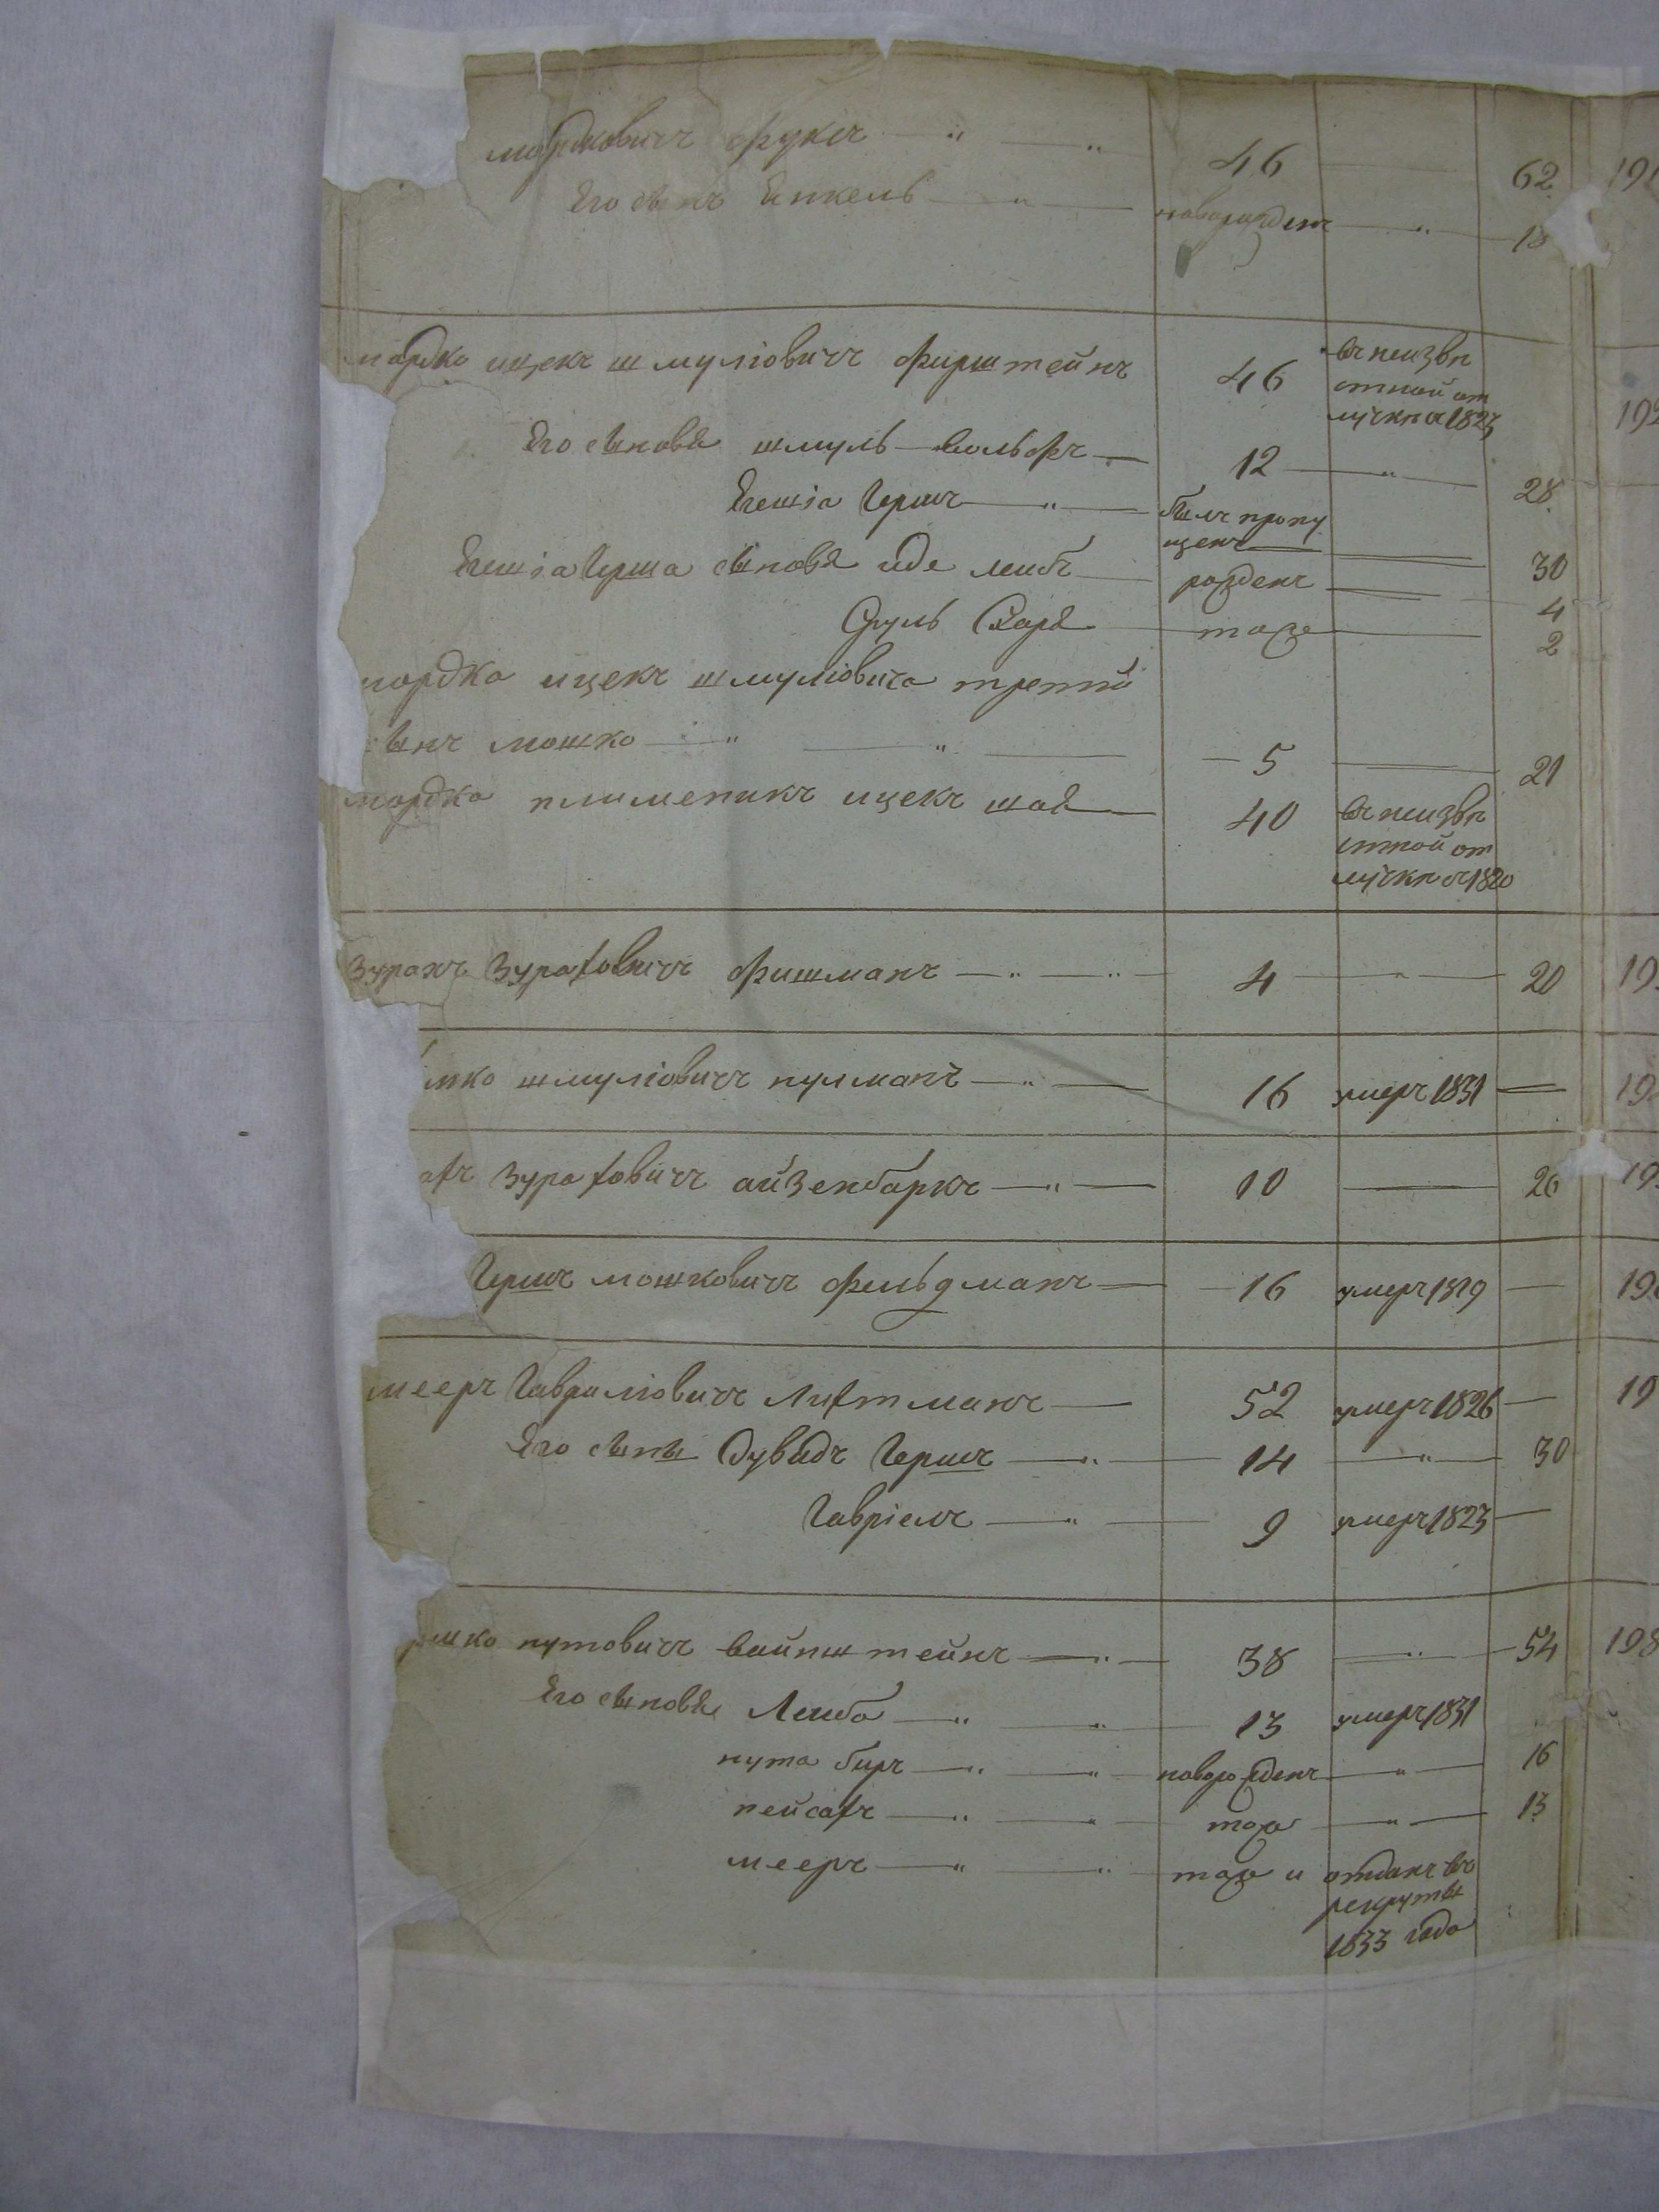 мордковичъ Фуксъ — " — " 46 — 62 191
Его сынъ Енкель — " — новорожденъ — " — 18
мордко ицекъ шмуліовичъ Фирштейнъ 46 въ неизвѣ
стной от
лучкѣ съ 1823 192
Его сыновья шмуль-вольфъ — 12 — " — 28
Егешіа Гершъ — " — былъ пропу
щенъ — 30
Егешіа Герша сыновья иде лейбъ — рожденъ — 4
Сруль Схарья — тоже — 2
мордка ицекъ шмуліовича третій
сынъ мошко — " — " — 5 — 21
мордка племеникъ ицекъ шая — 40 въ неизвѣ
стной от
лучкѣ съ 1820
Зурахъ Зураховичъ Фишманъ — " — " — 4 — " — 20 19
мко шмуліовичъ пулманъ — " — 16 умеръ 1831 — 19
ахъ Зураховичъ айзенбаркъ — " — 10 — 26 19
Гершъ мошковичъ Фельдманъ — 16 умеръ 1819 — 19
мееръ Гавриліовичъ Лихтманъ — 52 умеръ 1826 — 19
Его сыны Дувидъ Гершъ — " — 14 — " — 30
Гавріелъ — " — 9 умеръ 1823 —
шко нутовичъ вайнштейнъ — " — 38 — " — 54 198
Его сыновья Лейба — " — " — 13 умеръ 1831
нута беръ — " — " — новорожденъ — " — 16
пейсахъ — " — " — тоже — " — 13
мееръ — " — " — тоже и отданъ въ
рекруты
1833 года